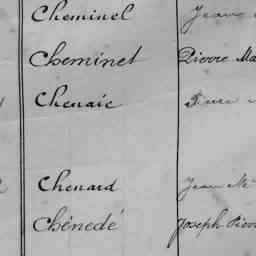 Cheminel Jean
Cheminet Pierre Ma
Chenaie
Chenard Jean M
Chénedé Joseph Pierr